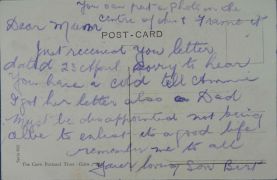 You can put a photo in the
centre of this & Frame it
Dear Mum
POST-CARD
Just received you letter
dated 23 April. Sorry to hear
you have a cold tell Annie
I got her letter also Dad
must be disappointed not being
able to enlist it a good life
remember me to all
Your loving Son Bert